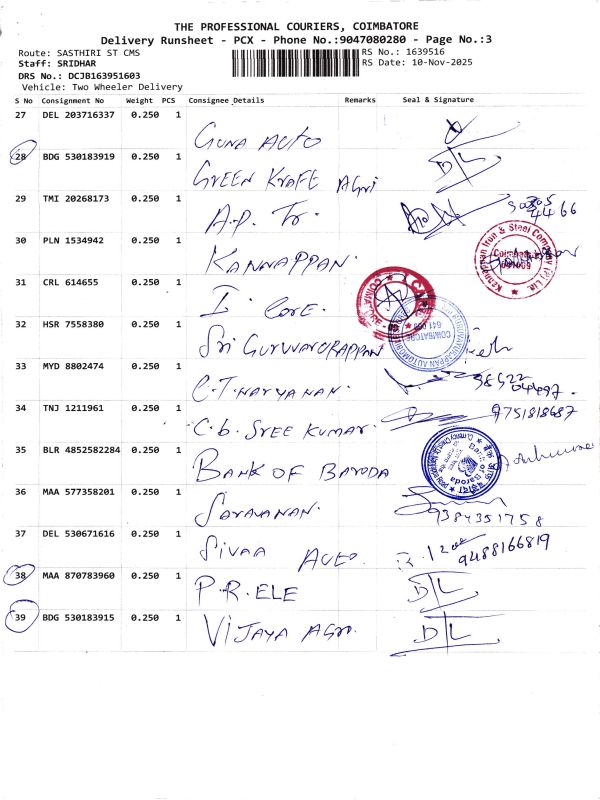 THE PROFESSIONAL COURIERS, COIMBATORE
Delivery Runsheet - PCX - Phone No.:9047080280 - Page No.:3
Route: SASTHIRI ST CMS RS No.: 1639516
Staff: SRIDHAR RS Date: 10-Nov-2025
DRS No.: DCJB163951603
Vehicle: Two Wheeler Delivery
S No Consignment No Weight PCS Consignee Details Remarks Seal & Signature
27 DEL 203716337 0.250 1
GUNA AUTO
28 BDG 530183919 0.250 1
GREEN KRAFE AGRI D/L
29 TMI 20268173 0.250 1
A.P. Tr. 4466
30 PLN 1534942 0.250 1
KANNAPPAN. Kannappan Iron & Steel Company (P) Ltd. Coimbatore 641009
31 CRL 614655 0.250 1
I CORE.
32 HSR 7558380 0.250 1
SRI GURUVAYORAPPAN COIMBATORE
33 MYD 8802474 0.250 1
C.T. NARYANAN.
34 TNJ 1211961 0.250 1
C.b. SREE KUMAR. 9751818687
35 BLR 4852582284 0.250 1
BANK OF BARODA Bank of Baroda
36 MAA 577358201 0.250 1
SARAVANAN. 9384351758
37 DEL 530671616 0.250 1
SIVAA AUTO. 9488166819
38 MAA 870783960 0.250 1
P.R. ELE D/L
39 BDG 530183915 0.250 1
VIJAYA AGRO. D/L